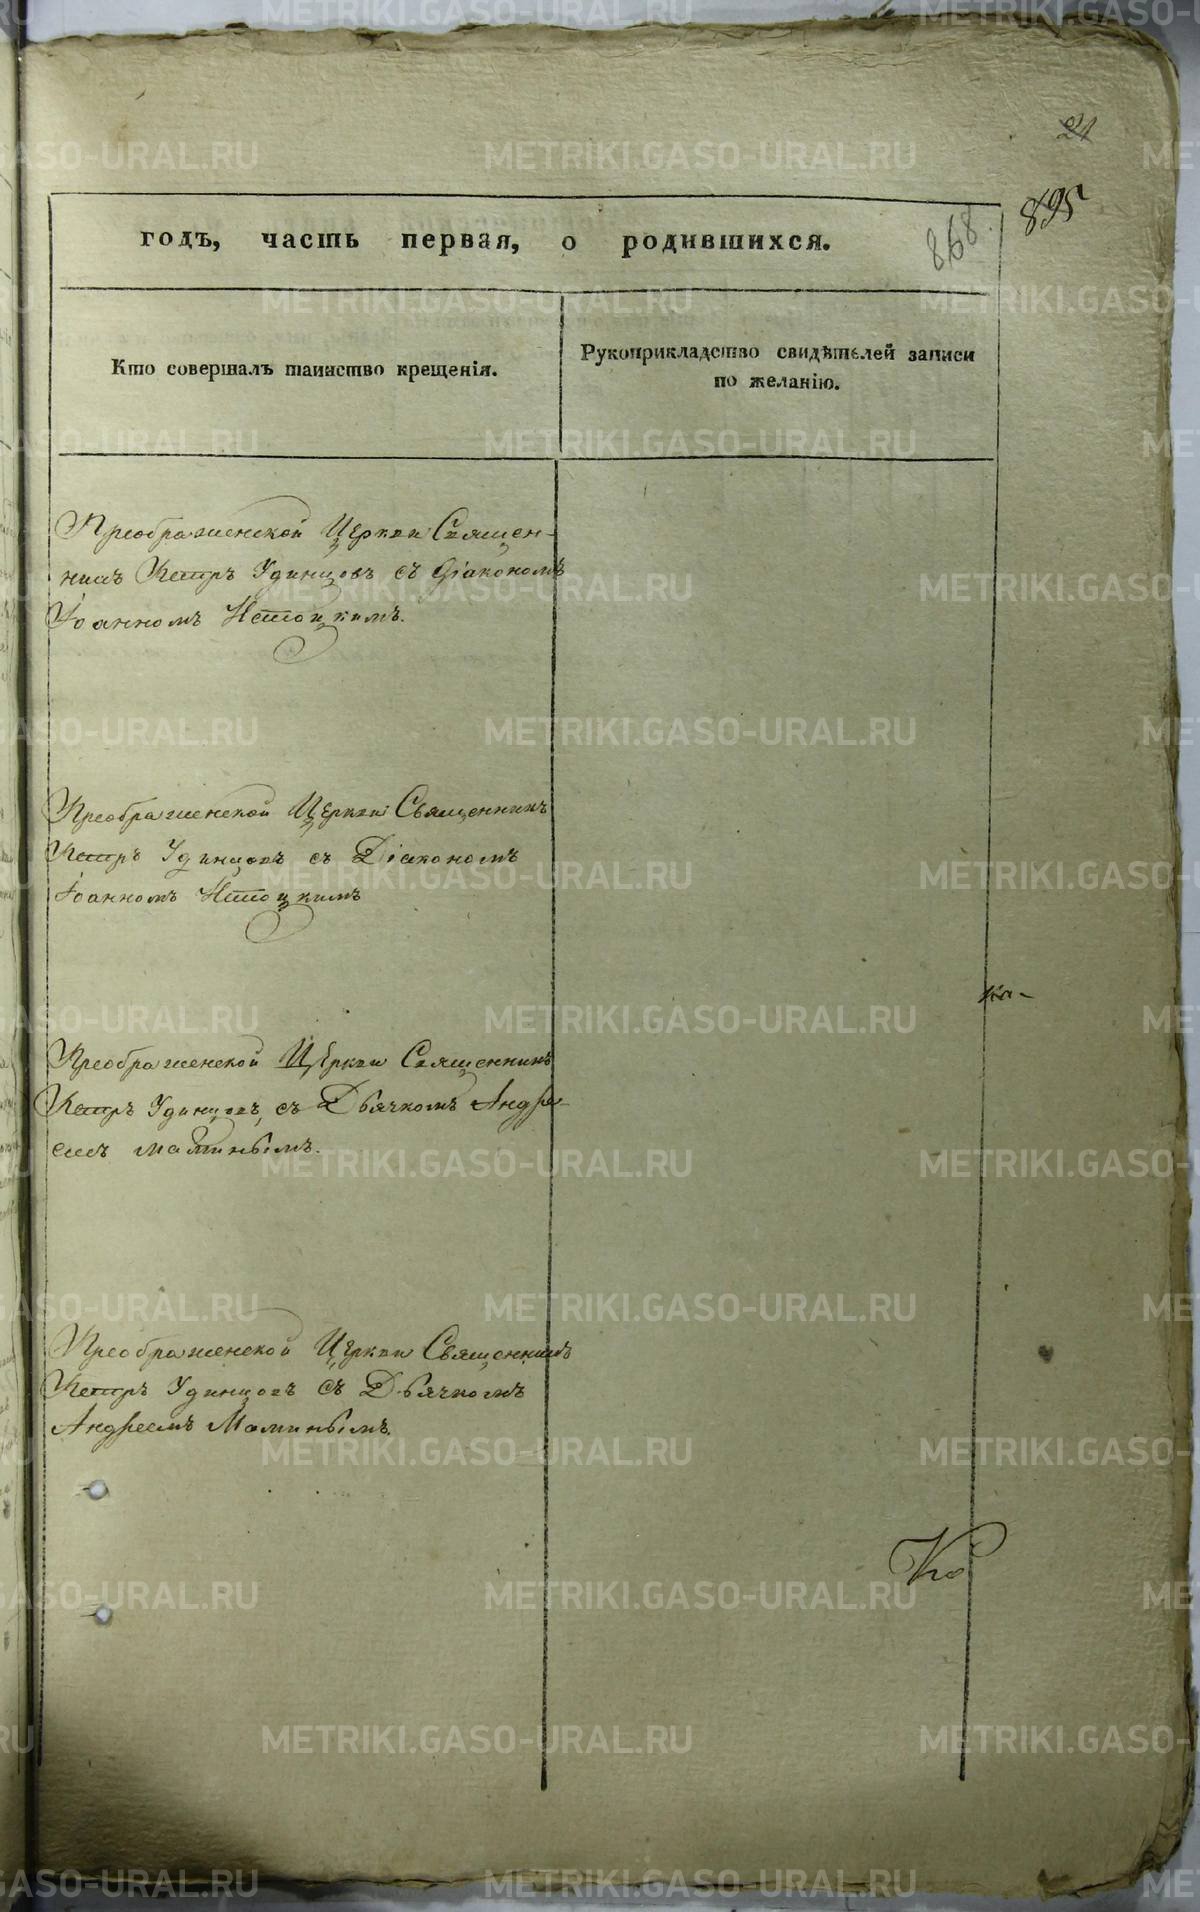 21
895
868.
годъ, часть первая, о родившихся.
Кто совершалъ таинство крещенія.
Рукоприкладство свидѣтелей записи
по желанію.
Преображенской Церкви Священ-
никъ Петръ Удинцовъ съ Діакономъ
Іоанномъ
Преображенской Церкви Священникъ
Петръ Удинцовъ съ Діакономъ
Іоанномъ
Преображенской Церкви Священникъ
Петръ Удинцовъ, съ Дьячкомъ Андре-
емъ Маминымъ.
Преображенской Церкви Священникъ
Петръ Удинцовъ съ Дьячкомъ
Андреемъ Маминымъ.
METRIKI.GASO-URAL.RU